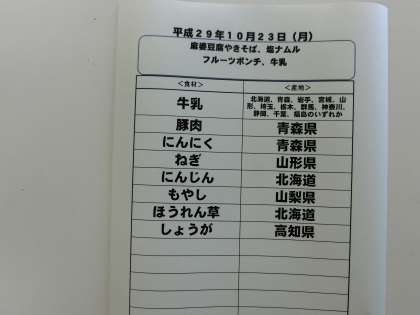 平成29年10月23日（月）
麻婆豆腐やきそば、塩ナムル
フルーツポンチ、牛乳
＜食材＞ ＜産地＞
牛乳 北海道、青森、岩手、宮城、山
形、埼玉、栃木、群馬、神奈川、
静岡、千葉、福島のいずれか
豚肉 青森県
にんにく 青森県
ねぎ 山形県
にんじん 北海道
もやし 山梨県
ほうれん草 北海道
しょうが 高知県